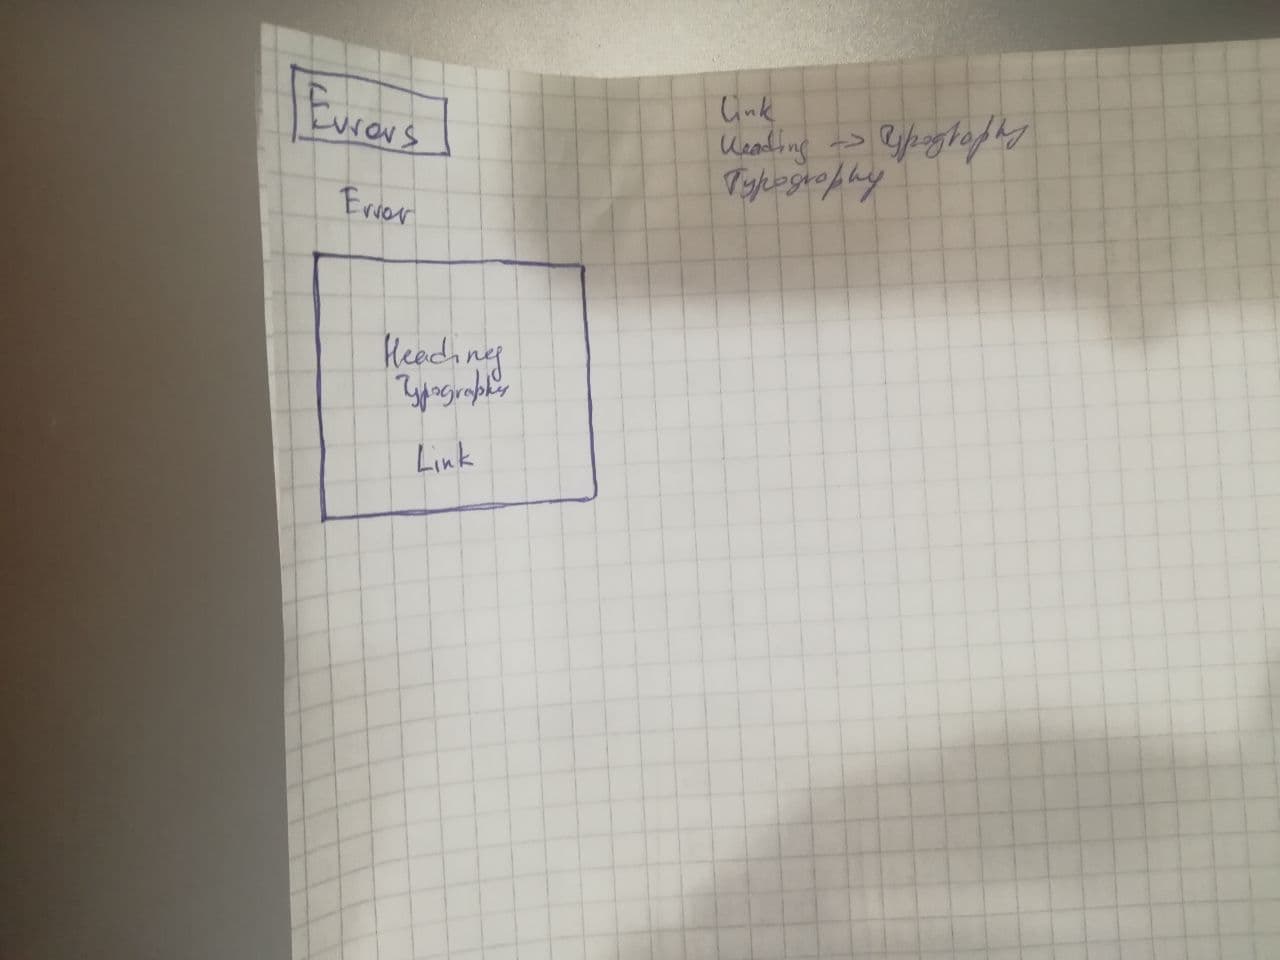 Errors
Error
Heading
Typography
Link
Link
Heading -> Typography
Typography